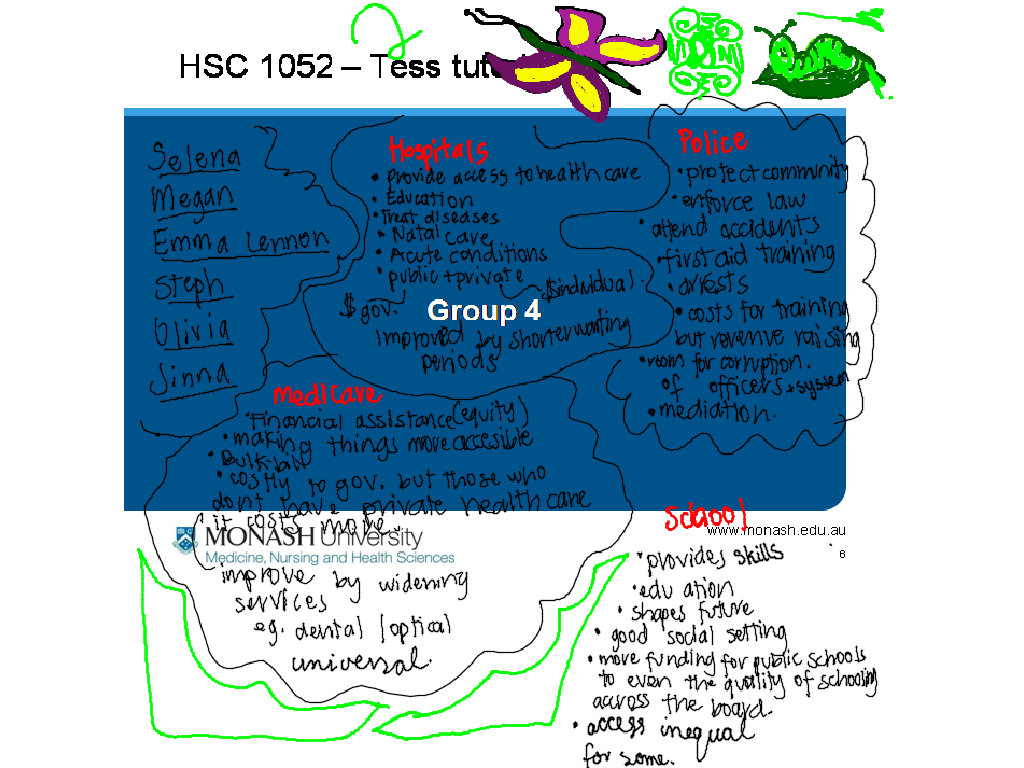 HSC 1052 – Tess
Selena
Megan
Emma Lennon
Steph
Olivia
Jinna
Hospitals
• Provide access to health care
• Education
• Treat diseases
• Natal care
• Acute conditions
• public + private
$ gov. $individual.
Group 4
improved by shorter waiting
periods
Police
• protect community
• enforce law
• attend accidents
• first aid training
• arrests
• costs for training
but revenue raising
• room for corruption.
of officers + system
• mediation.
medicare
Financial assistance (equity)
• making things more accesible
• Bulk bill
• costly to gov. but those who
dont have private health care
it costs more.
MONASH University
Medicine, Nursing and Health Sciences
improve by widening
services
eg. dental / optical
universal.
School
www.monash.edu.au
6
• provides skills
• education
• shapes future
• good social setting
• more funding for public schools
to even the quality of schooling
accross the board.
• access inequal
for some.